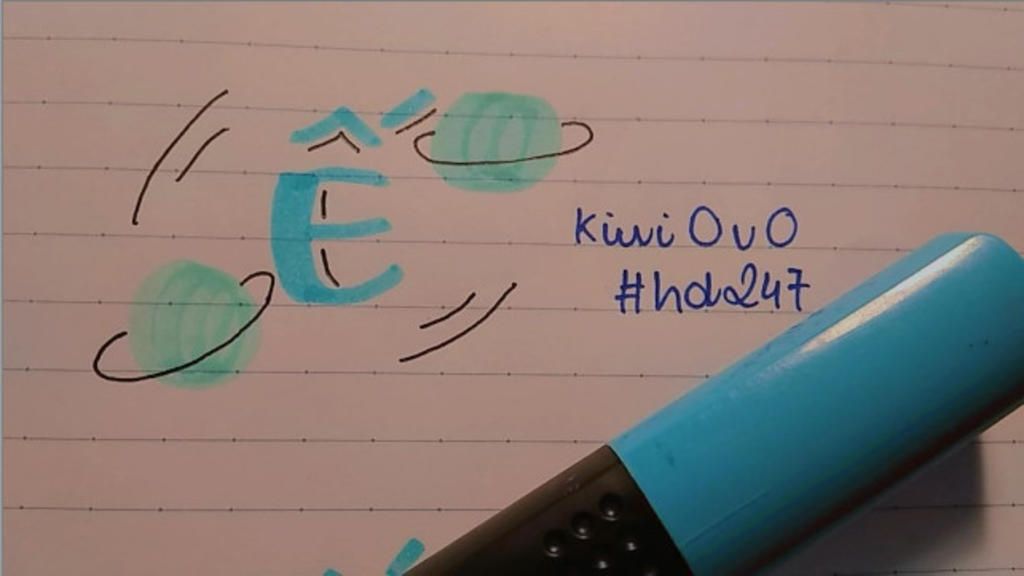 Ế
kiwi OvO
#hdz247